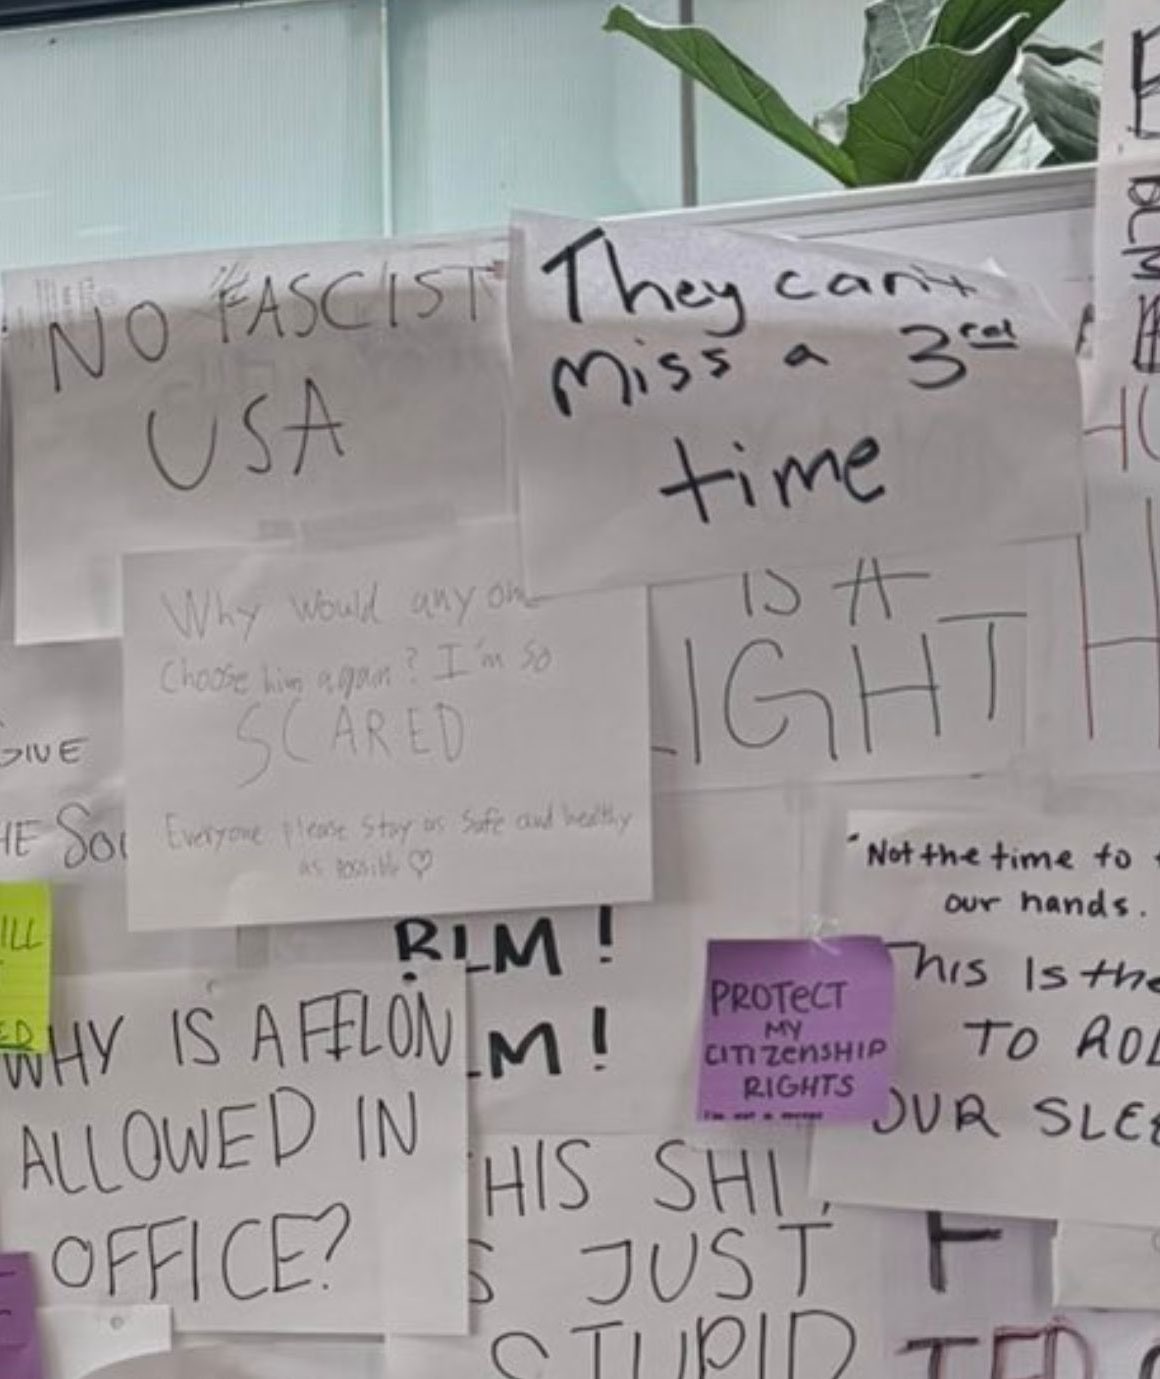 NO FASCIST
USA
They can't
miss a 3rd
time
Why would any one
choose him again? I'm so
SCARED
Everyone please stay as safe and healthy
as possible ♡
IS A
IGHT
GIVE
HE SOU
ILL
ED
BLM!
LM!
WHY IS A FELON
ALLOWED IN
OFFICE?
PROTECT
MY
CITIZENSHIP
RIGHTS
"Not the time to
our hands.
This is the
TO ROL
OUR SLEE
HIS SHI
S JUST
STUPID